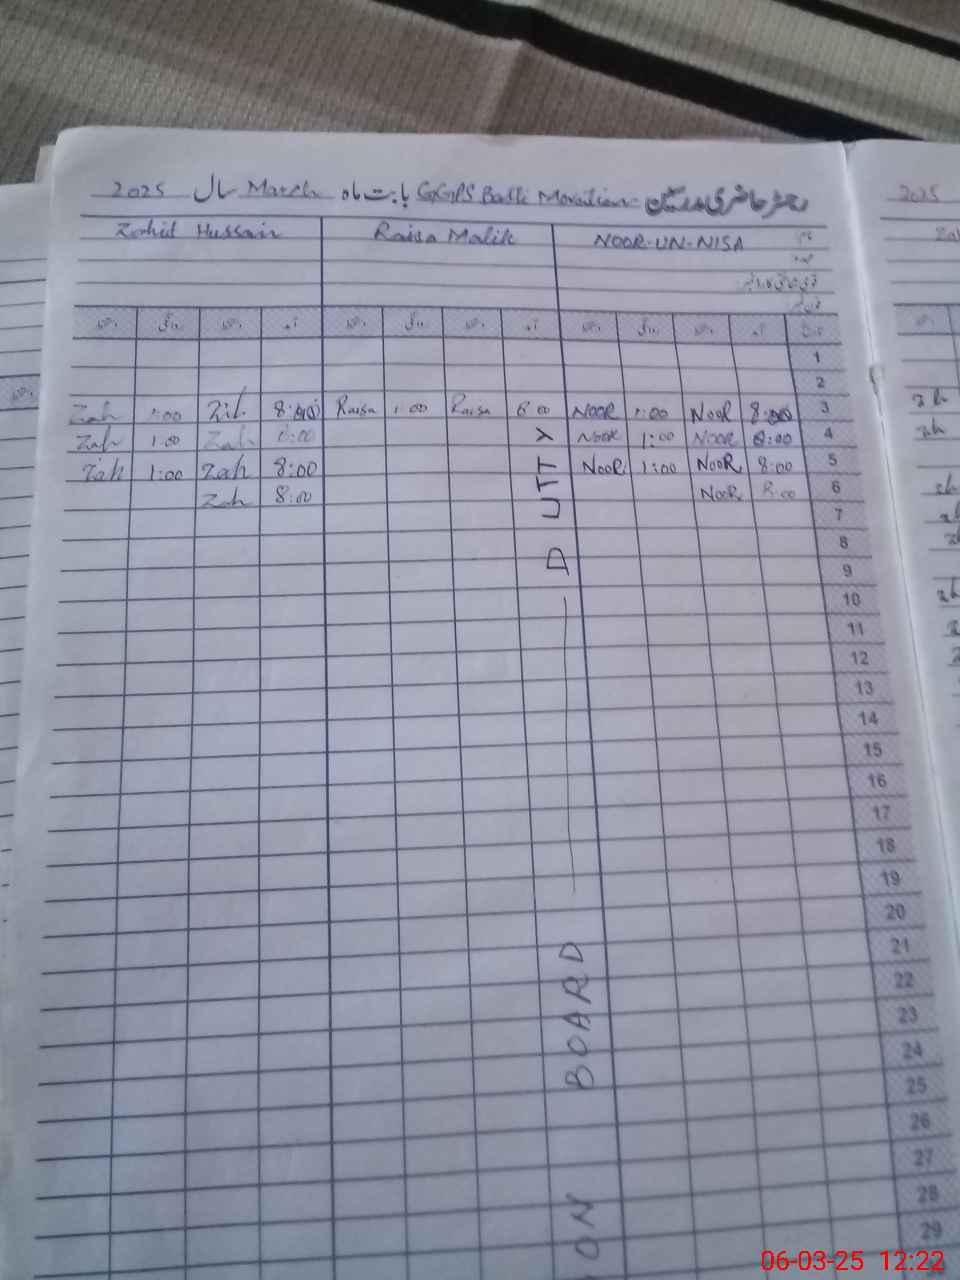 رجسٹر حاضری مدرسین GGPS Basti Moratian بابت ماہ March سال 2025
NOOR-UN-NISA Raisa Malik Zahid Hussain
نام
عہدہ
1
2
3 8:00 NOOR 1:00 NOOR 8:00 Raisa 1:00 Raisa 8:00 Zah 1:00 Zah
4 8:00 NOOR 1:00 NOOR 8:00 Zah 1:00 Zah
5 8:00 NOOR 1:00 NOOR 8:00 Zah 1:00 Zah
6 8:00 NOOR 8:00 Zah
7
8
9
10
11
12
13
14
15
16
17
18
19
20
21
22
23
24
25
26
27
28
29
ON BOARD DUTTY
2025
06-03-25 12:22